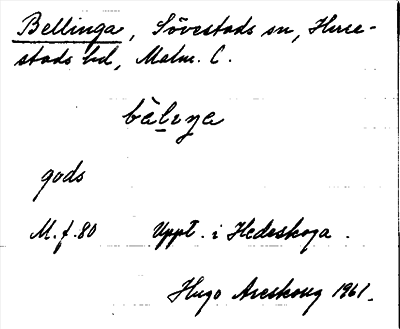 Bellinga, Sövestads sn, Herre-
stads hd, Malm. C.
gods
M. f. 80 Uppt. i Hedeskoga.
Hugo Areskoug 1961.